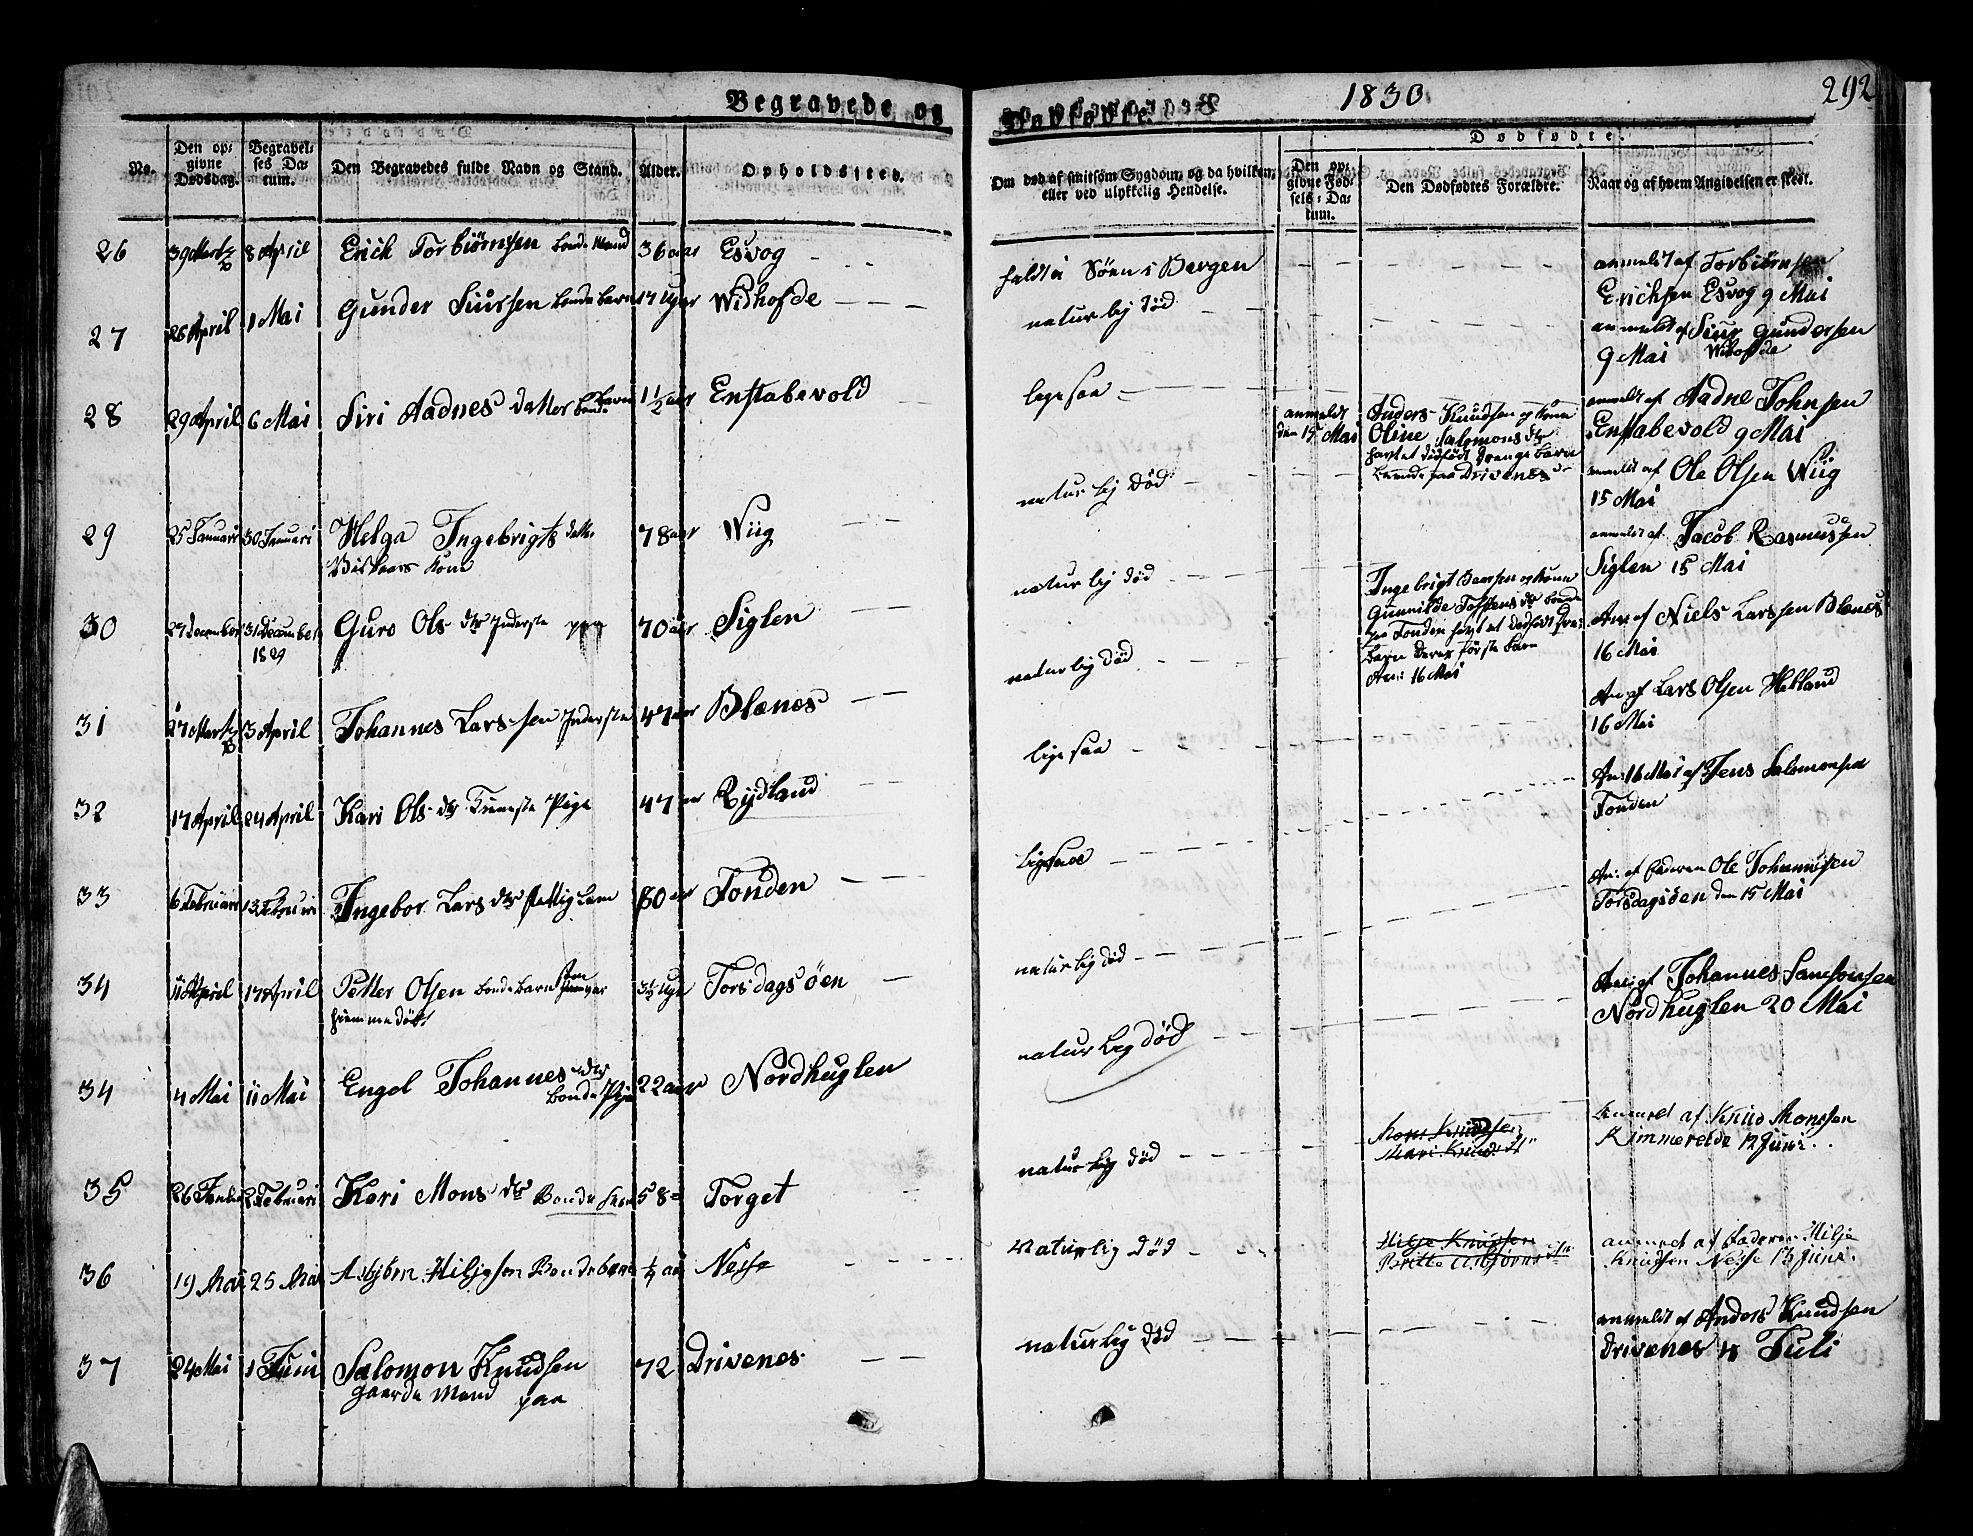 Begravede og
Dødfødte.
1830
292
Dødfødte.
No.
Den opgivne Dødsdag.
Begravelses Datum.
Den Begravedes fulde Navn og Stand.
Alder.
Opholdssted.
Om død af smitsom Sygdom, og da hvilken, eller ved ulykkelig Hendelse.
Den opgivne Fødsels-Datum.
Den Dødfødtes Forældre.
Naar og af hvem Angivelsen er skeet.
26 8 April Erich Torbiörnsen bonde Mand 36 aar Esvog
faldt i Söen i Bergen
anmeldt af Torbiörnsen
Erichsen Esvog 9 Mai
27 April 1 Mai Gunder Siursen bonde barn 17 Uger Widhofde
naturlig död
anmeldt af Siur Gundersen
9 Mai Wihofde
28 29 April 6 Mai Siri Aadnes datter bonde barn 1½ aar Enstabevold
lige saa
anmeldt
den 15 Mai
Anders Knudsen og kone
Oline Salomons dtr
havt et dödfödt Drenge barn
paa Drivenes
anmeldt af Aadne Johnsen
Enstabevold 9 Mai
29 25 Januari 30 Januari Helga Ingebrigts datter 78 aar Wiig
Kone
naturlig död
anmeldt af Ole Olsen Wiig
15 Mai
30 27 December 31 December Guro Ols dtr Inderste paa 70 aar Siglen
1829
naturlig död
Ingebrigt og Kone
Gunnilde dtr
paa Tonden havt et dödfödt
barn deres förste barn
An: 16 Mai
anmeldt af Jacob Rasmussen
Siglen 15 Mai
31 27 Martz 3 April Johannes Larssen Inderste 47 aar Blænes
naturlig död
An: af Niels Larssen Blænes
16 Mai
32 17 April 24 April Kari Ols dtr Pige 47 aar Rydland
lige saa
An: af Lars Olsen Hekland
16 Mai
33 6 Februari 13 Februari Ingebor Lars dtr 80 aar Tonden
ligesaa
An: 16 Mai af Jens Salomonsen
Tonden
34 11 April 17 April Petter Olsen bonde Barn 3½ Uge Torsdagsöen
hiemme döbt
naturlig död
An: af Faderen Ole Johannesen
Torsdagsöen den 15 Mai
34 4 Mai 11 Mai Engel Johannes dtr 22 aar Nordhuglen
bonde Pige
naturlig död
An: af Johannes Samsonsen
Nordhuglen 20 Mai
35 26 2 Februari Kari Mons dtr Bonde 58 Torget
naturlig död
Mons Knudsen
Mari Knudsdtr
af Knud Monssen
Rimmereide 12 Juni
36 19 Mai 25 Mai Asbjørn Hiljesen Bondebarn ¼ aar Nesse
Naturlig död
Hilje Knudsen
Britte Asbjørnsdtr
anmeldt af Faderen Hilje
Knudsen Nesse 13 Juni
37 24 Mai 1 Juni Salomon Knudsen 72 Drivenes
gaarde Mand paa
naturlig död
anmeldt af Anders Knudsen
Drivenes 11 Juli